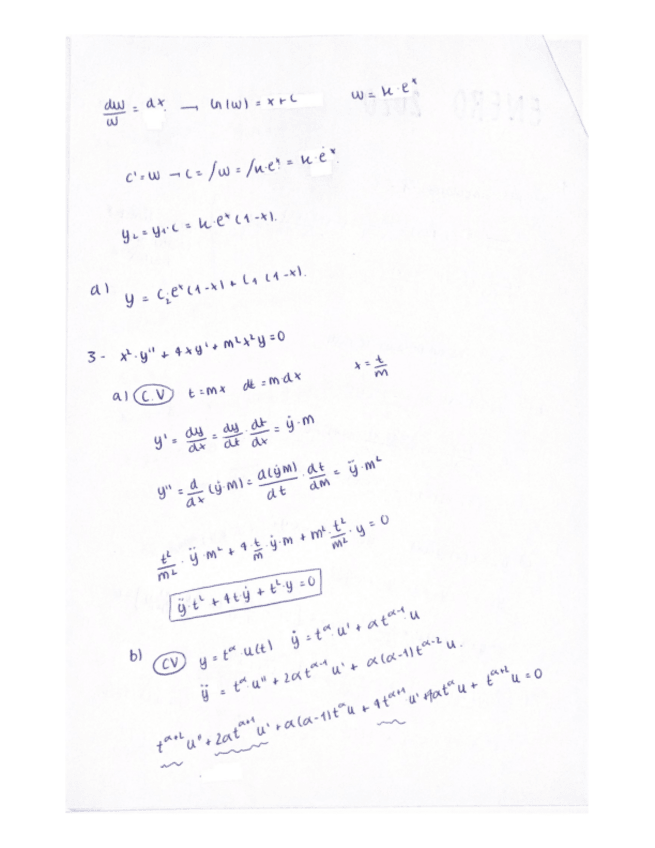 dw/w = dx → ln(w) = x + c w = k·eˣ
c' = w → c = ∫w = ∫k·eˣ = k·eˣ.
y₂ = y₁·c = k·eˣ(1-x).
a) y = C₂eˣ(1-x) + C₁(1-x).
3- x²·y'' + 4xy' + m²x²y = 0
a) C.V t = mx dt = m dx x = t/m
y' = dy/dx = dy/dt · dt/dx = ẏ·m
y'' = d/dx (ẏ·m) = d(ẏm)/dt · dt/dm = ÿ·m²
t²/m² · ÿ·m² + 4·t/m·ẏ·m + m²·t²/m²·y = 0
ÿ·t² + 4tẏ + t²·y = 0
b) CV y = t^α·u(t) ẏ = t^α·u' + αt^(α-1)·u
ÿ = t^α·u'' + 2αt^(α-1)u' + α(α-1)t^(α-2)u.
t^(α+2)u'' + 2αt^(α+1)u' + α(α-1)t^αu + 4t^(α+1)u' + 4αt^αu + t^(α+2)u = 0